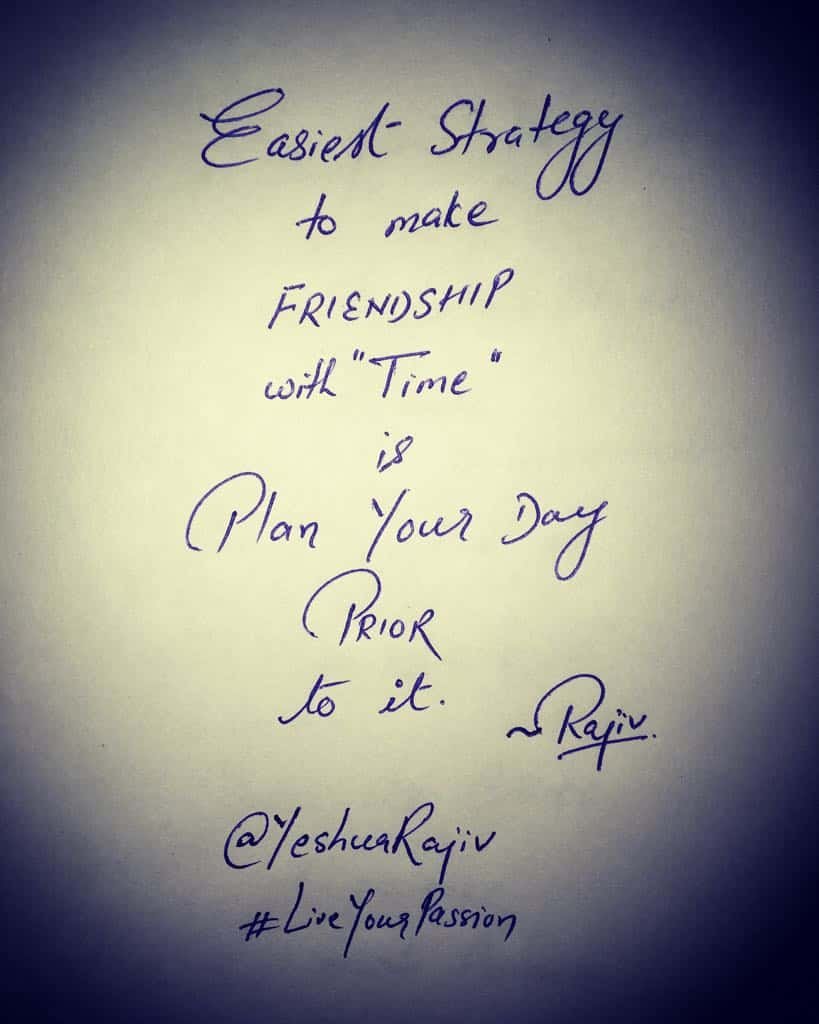 Easiest Strategy
to make
FRIENDSHIP
with "Time"
is
Plan Your Day
PRIOR
to it.
~Rajiv.
@YeshuaRajiv
#LiveYourPassion